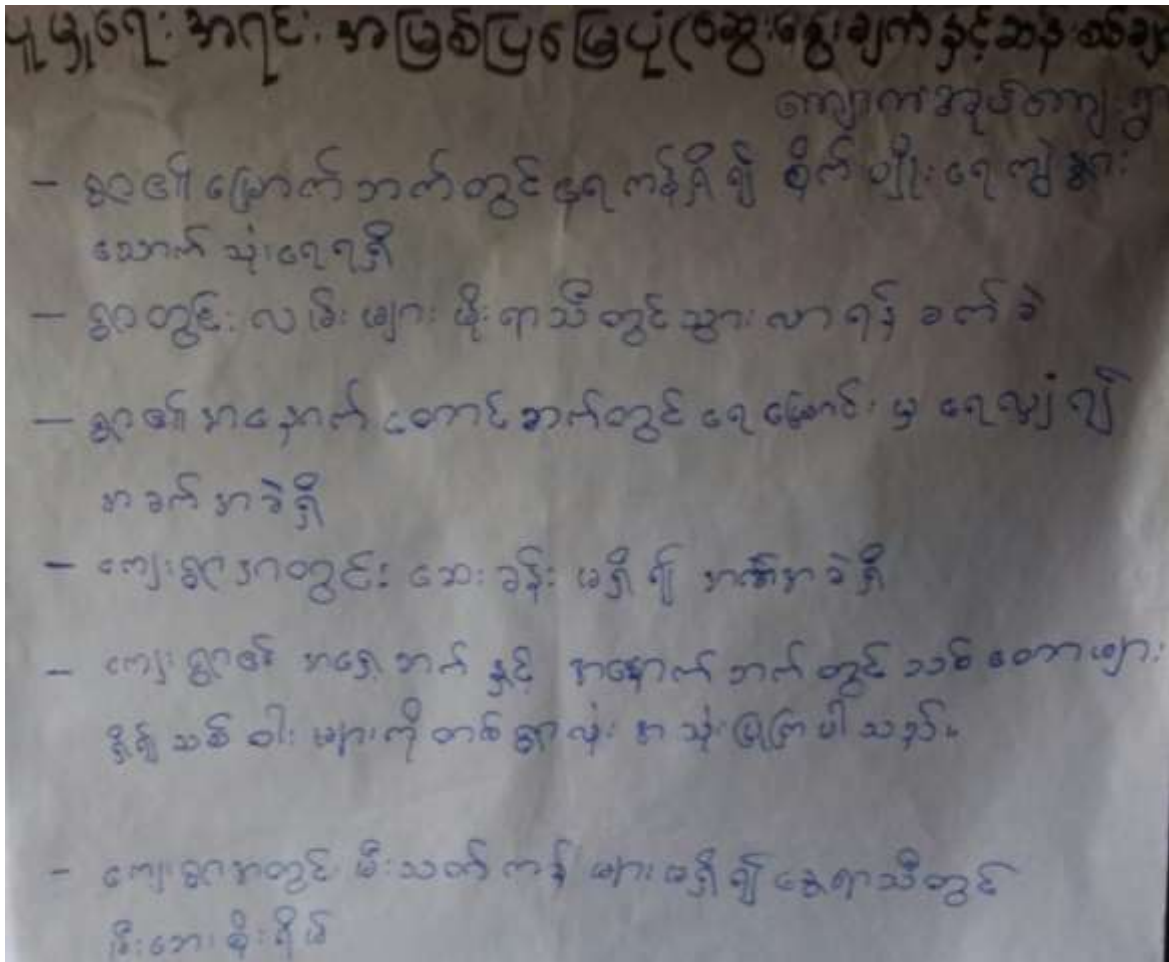 လူမှုရေး အရင်းအမြစ်ပြမြေပုံ(ဆွေးနွေးချက်နှင့်ဆန်းစစ်ချ
ကျောက်အုပ်ကျေးရွာ
- ရွာ၏ မြောက်ဘက်တွင် ရေကန်ရှိ၍ စိုက်ပျိုးရေ ကျွဲနွား
သောက်သုံးရေရရှိ
- ရွာတွင်း လမ်းများ မိုးရာသီတွင်သွားလာရန် ခက်ခဲ
- ရွာ၏ အနောက်တောင်ဘက်တွင် ရေမြောင်းမှ ရေလျှံ၍
အခက်အခဲရှိ
- ကျေးရွာအတွင်း ဆေးခန်း မရှိ၍ အခက်အခဲရှိ
- ကျေးရွာ၏ အရှေ့ဘက် နှင့် အနောက်ဘက်တွင် သစ်တောများ
ရှိ၍ သစ်ဝါးများကို တစ်ရွာလုံး အသုံးပြုကြပါသည်။
- ကျေးရွာအတွင် မီးသတ်ကန်များမရှိ၍ နွေရာသီတွင်
မီးဘေးစိုးရိမ်